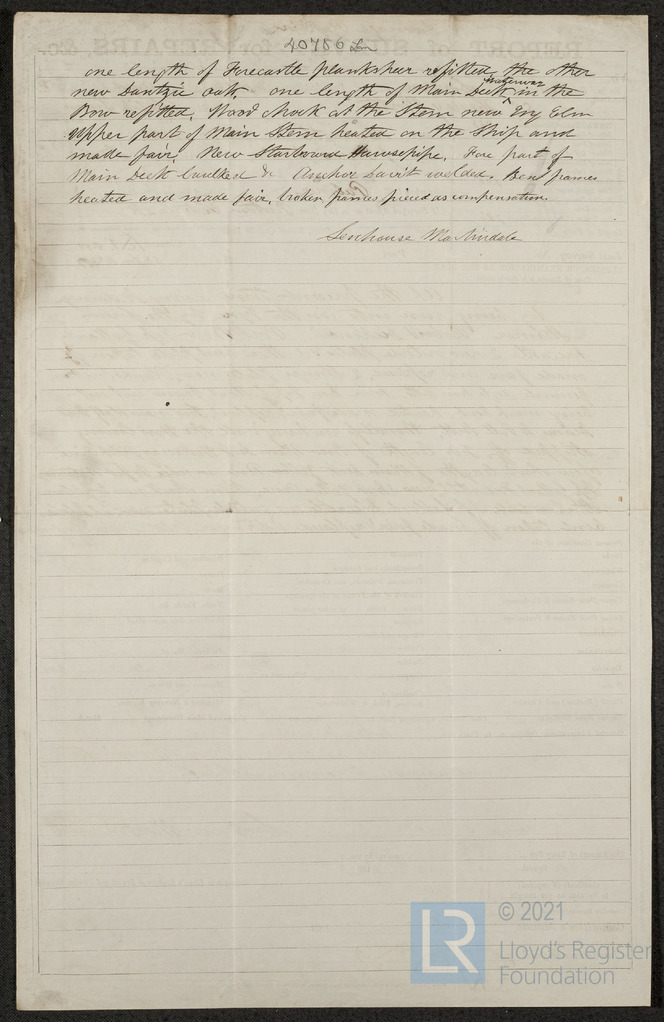 40786 Lon
one length of Forecastle planksheer refitted, the other
new Dantzic oak one length of Main Deck ^ waterway in the
Bow refitted. Wood chock at the Stem new Eng Elm
Upper part of Main Stem heated on the Ship and
made fair. New Starboard Hawsepipe. Fore part of
Main Deck Caulked & Anchor Davit welded. Bent frames
heated and made fair, broken frames pieced as compensation.
Senhouse Martindale
© 2021
LR
Lloyd's Register
Foundation